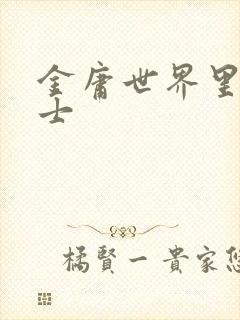 金庸世界里
士
橘賢一貴家悠